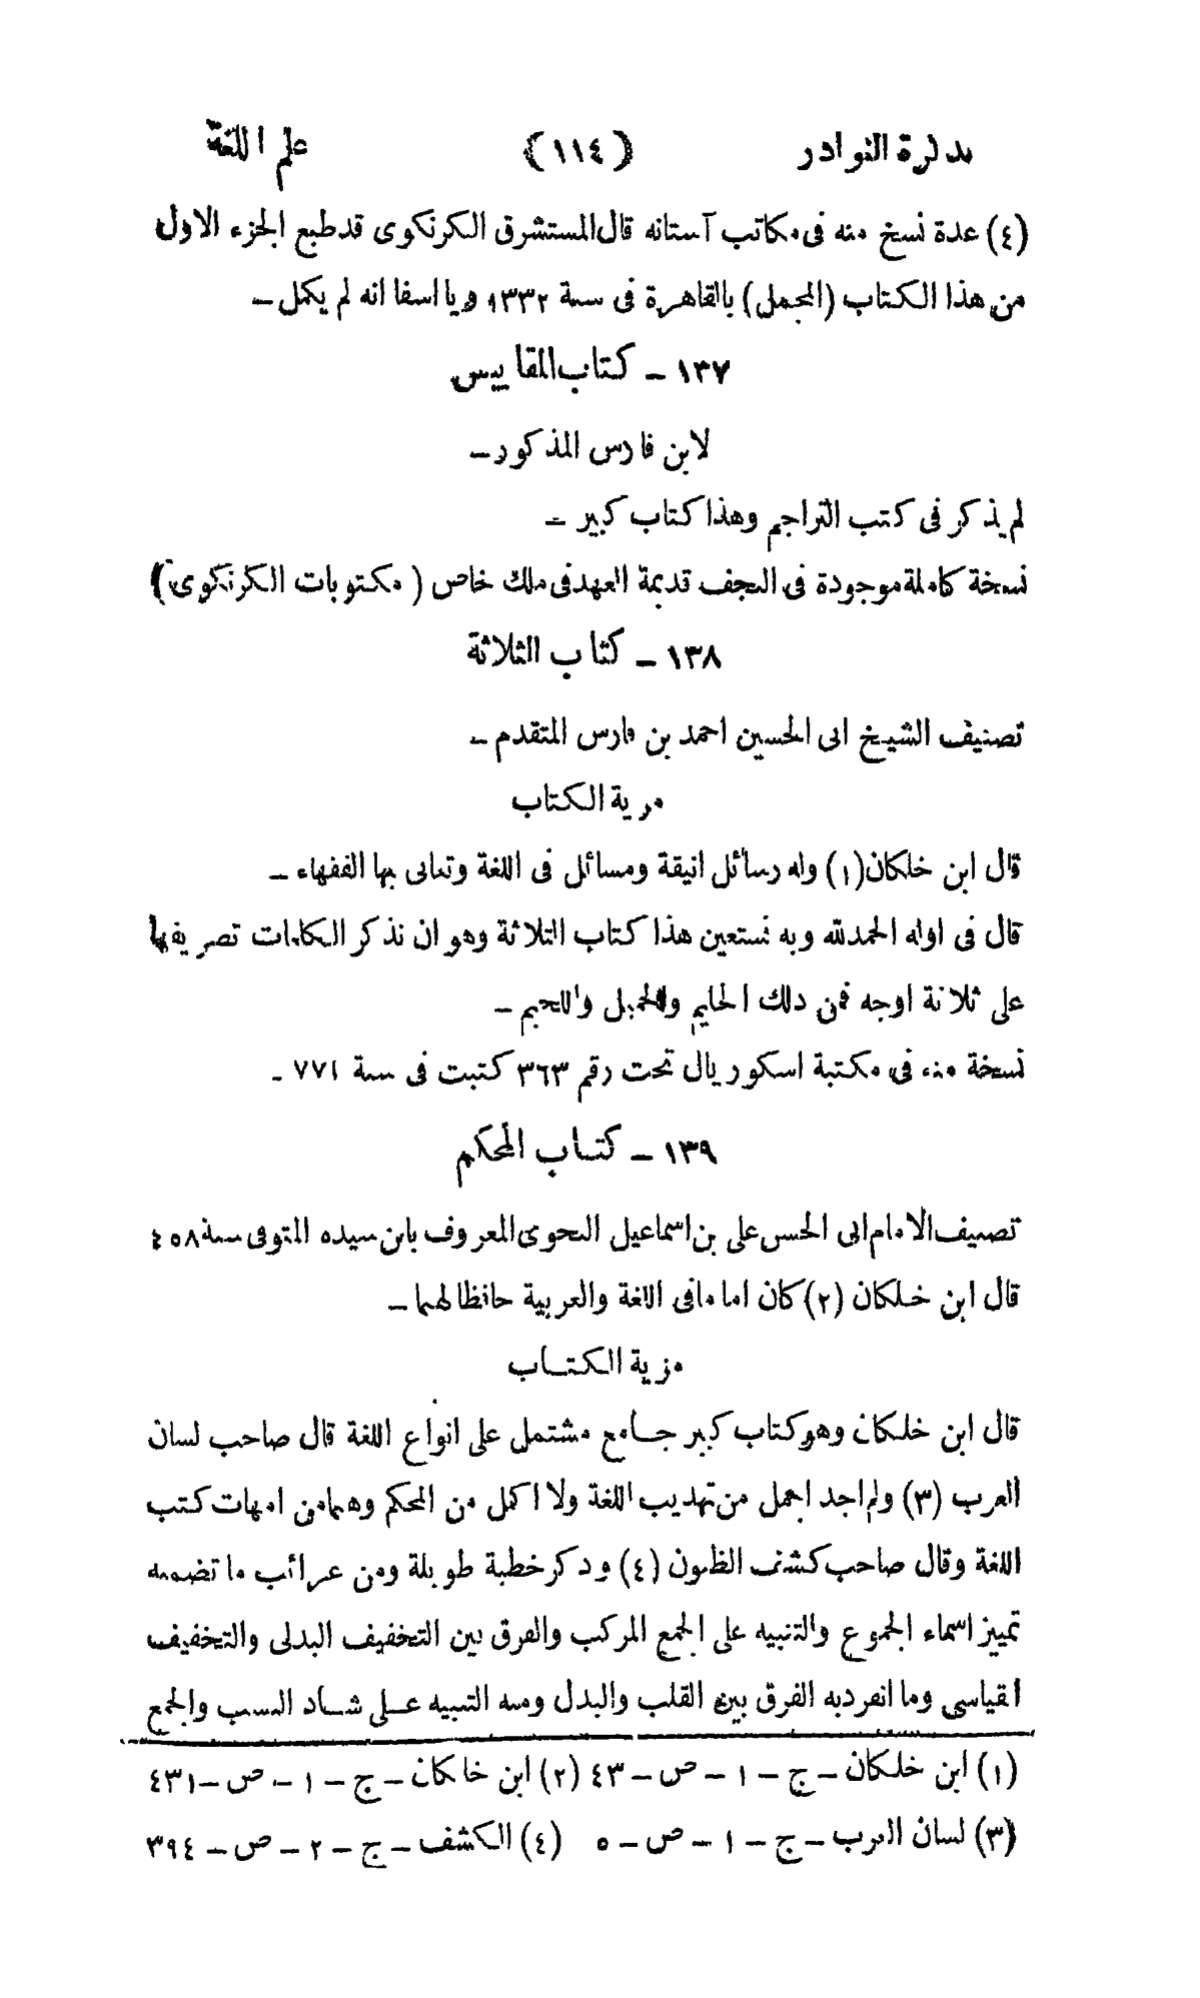 تذكرة النوادر (١١٤) علم اللغة
(٤) عدة نسخ منه فى مكاتب آستانه قال المستشرق الكرنكوى قد طبع الجزء الاول
من هذا الكتاب (المجمل) بالقاهرة فى سنة ١٣٣٢ ويا اسفا انه لم يكمل ــ
١٣٧ ــ كتاب المقاييس
لابن فارس المذكور ــ
لم يذكر فى كتب التراجم وهذا كتاب كبير ــ
نسخة كاملة موجودة فى النجف قديمة العهد فى ملك خاص (مكتوبات الكرنكوى)
١٣٨ ــ كتاب الثلاثة
تصنيف الشيخ ابى الحسين احمد بن فارس المتقدم ــ
مزية الكتاب
قال ابن خلكان (١) وله رسائل انيقة ومسائل فى اللغة وتعانى بها الفقهاء ــ
قال فى اوله الحمد لله وبه نستعين هذا كتاب الثلاثة وهو ان نذكر الكلمات تصريفها
على ثلاثة اوجه فمن ذلك الحليم والحميل واللحيم ــ
نسخة منه فى مكتبة اسكوريال تحت رقم ٣٦٣ كتبت فى سنة ٧٧١ ــ
١٣٩ ــ كتاب المحكم
تصنيف الامام ابى الحسن على بن اسماعيل النحوى المعروف بابن سيده المتوفى سنة ٤٥٨
قال ابن خلكان (٢) كان اماما فى اللغة والعربية حافظا لهما ــ
مزية الكتاب
قال ابن خلكان وهو كتاب كبير جامع مشتمل على انواع اللغة قال صاحب لسان
العرب (٣) ولم اجد اجمل من تهذيب اللغة ولا اكمل من المحكم وهما من امهات كتب
اللغة وقال صاحب كشف الظنون (٤) وذكر خطبة طويلة ومن غرائب ما تضمنه
تمييز اسماء الجموع والتنبيه على الجمع المركب والفرق بين التخفيف البدلى والتخفيف
القياسى وما انفرد به الفرق بين القلب والبدل ومنه التنبيه على شاذ النسب والجمع
(١) ابن خلكان ــ ج ــ ١ ــ ص ــ ٤٣ (٢) ابن خلكان ــ ج ــ ١ ــ ص ــ ٤٣١
(٣) لسان العرب ــ ج ــ ١ ــ ص ــ ٥ (٤) الكشف ــ ج ــ ٢ ــ ص ــ ٣٩٤